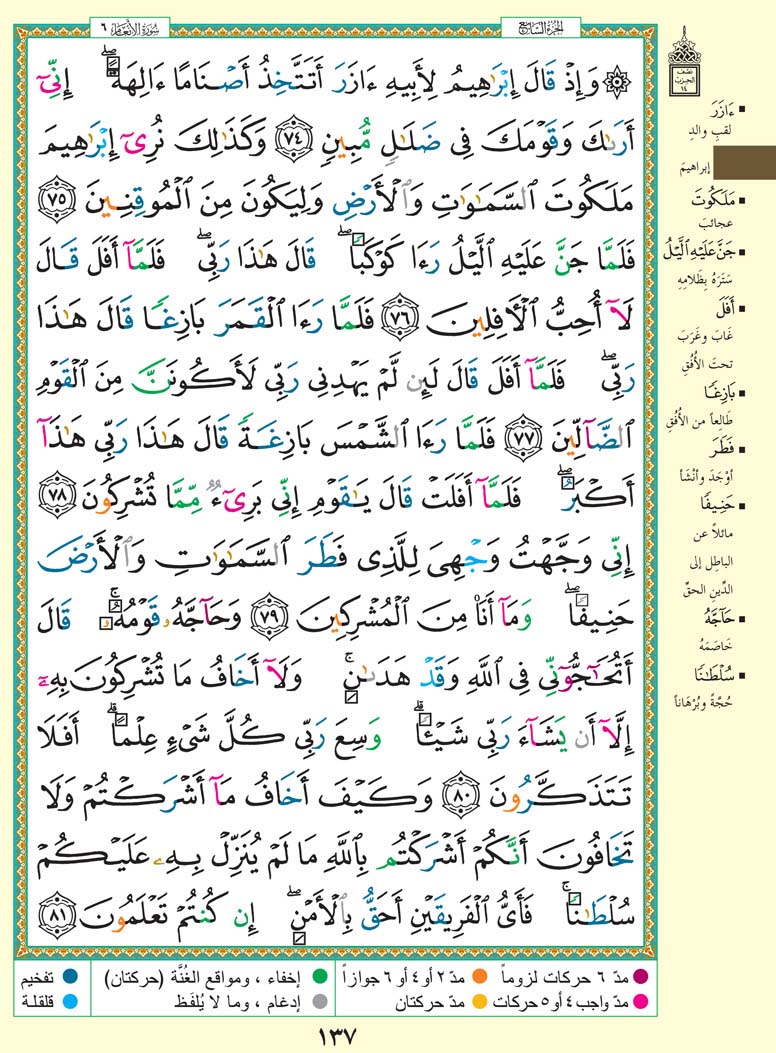 الجزء السابع
سورة الأنعام ٦
۞ وَإِذْ قَالَ إِبْرَٰهِيمُ لِأَبِيهِ ءَازَرَ أَتَتَّخِذُ أَصْنَامًا ءَالِهَةً ۖ إِنِّىٓ
أَرَىٰكَ وَقَوْمَكَ فِى ضَلَٰلٍ مُّبِينٍ ﴿٧٤﴾ وَكَذَٰلِكَ نُرِىٓ إِبْرَٰهِيمَ
مَلَكُوتَ السَّمَٰوَٰتِ وَالْأَرْضِ وَلِيَكُونَ مِنَ الْمُوقِنِينَ ﴿٧٥﴾
فَلَمَّا جَنَّ عَلَيْهِ الَّيْلُ رَءَا كَوْكَبًا ۖ قَالَ هَٰذَا رَبِّى ۖ فَلَمَّآ أَفَلَ قَالَ
لَآ أُحِبُّ الْأَفِلِينَ ﴿٧٦﴾ فَلَمَّا رَءَا الْقَمَرَ بَازِغًا قَالَ هَٰذَا
رَبِّى ۖ فَلَمَّآ أَفَلَ قَالَ لَئِن لَّمْ يَهْدِنِى رَبِّى لَأَكُونَنَّ مِنَ الْقَوْمِ
الضَّآلِّينَ ﴿٧٧﴾ فَلَمَّا رَءَا الشَّمْسَ بَازِغَةً قَالَ هَٰذَا رَبِّى هَٰذَآ
أَكْبَرُ ۖ فَلَمَّآ أَفَلَتْ قَالَ يَٰقَوْمِ إِنِّى بَرِىٓءٌ مِّمَّا تُشْرِكُونَ ﴿٧٨﴾
إِنِّى وَجَّهْتُ وَجْهِىَ لِلَّذِى فَطَرَ السَّمَٰوَٰتِ وَالْأَرْضَ
حَنِيفًا ۖ وَمَآ أَنَا۠ مِنَ الْمُشْرِكِينَ ﴿٧٩﴾ وَحَآجَّهُۥ قَوْمُهُۥ ۚ قَالَ
أَتُحَٰٓجُّوٓنِّى فِى اللَّهِ وَقَدْ هَدَىٰنِ ۚ وَلَآ أَخَافُ مَا تُشْرِكُونَ بِهِۦٓ
إِلَّآ أَن يَشَآءَ رَبِّى شَيْـًٔا ۗ وَسِعَ رَبِّى كُلَّ شَىْءٍ عِلْمًا ۗ أَفَلَا
تَتَذَكَّرُونَ ﴿٨٠﴾ وَكَيْفَ أَخَافُ مَآ أَشْرَكْتُمْ وَلَا
تَخَافُونَ أَنَّكُمْ أَشْرَكْتُم بِاللَّهِ مَا لَمْ يُنَزِّلْ بِهِۦ عَلَيْكُمْ
سُلْطَٰنًا ۚ فَأَىُّ الْفَرِيقَيْنِ أَحَقُّ بِالْأَمْنِ ۖ إِن كُنتُمْ تَعْلَمُونَ ﴿٨١﴾
نصف
الحزب
١٤
ءَازَرَ
لقب والدِ
إبراهيمَ
مَلَكُوتَ
عجائبَ
جَنَّ عَلَيْهِ الَّيْلُ
سَتَرَهُ بِظَلامِهِ
أَفَلَ
غَابَ وغَرَبَ
تحتَ الأُفُقِ
بَازِغًا
طَالِعاً من الأُفُقِ
فَطَرَ
أوْجَدَ وأنْشَأ
حَنِيفًا
مائلاً عن
الباطِلِ إلى
الدِّينِ الحقِّ
حَآجَّهُ
خَاصَمَهُ
سُلْطَٰنًا
حُجَّةً وبُرْهَاناً
مدّ ٦ حركات لزوماً
مدّ ٢ أو ٤ أو ٦ جوازاً
إخفاء ، ومواقع الغُنَّة (حركتان)
تفخيم
مدّ واجب ٤ أو ٥ حركات
مدّ حركتان
إدغام ، وما لا يُلفَظ
قلقلة
١٣٧